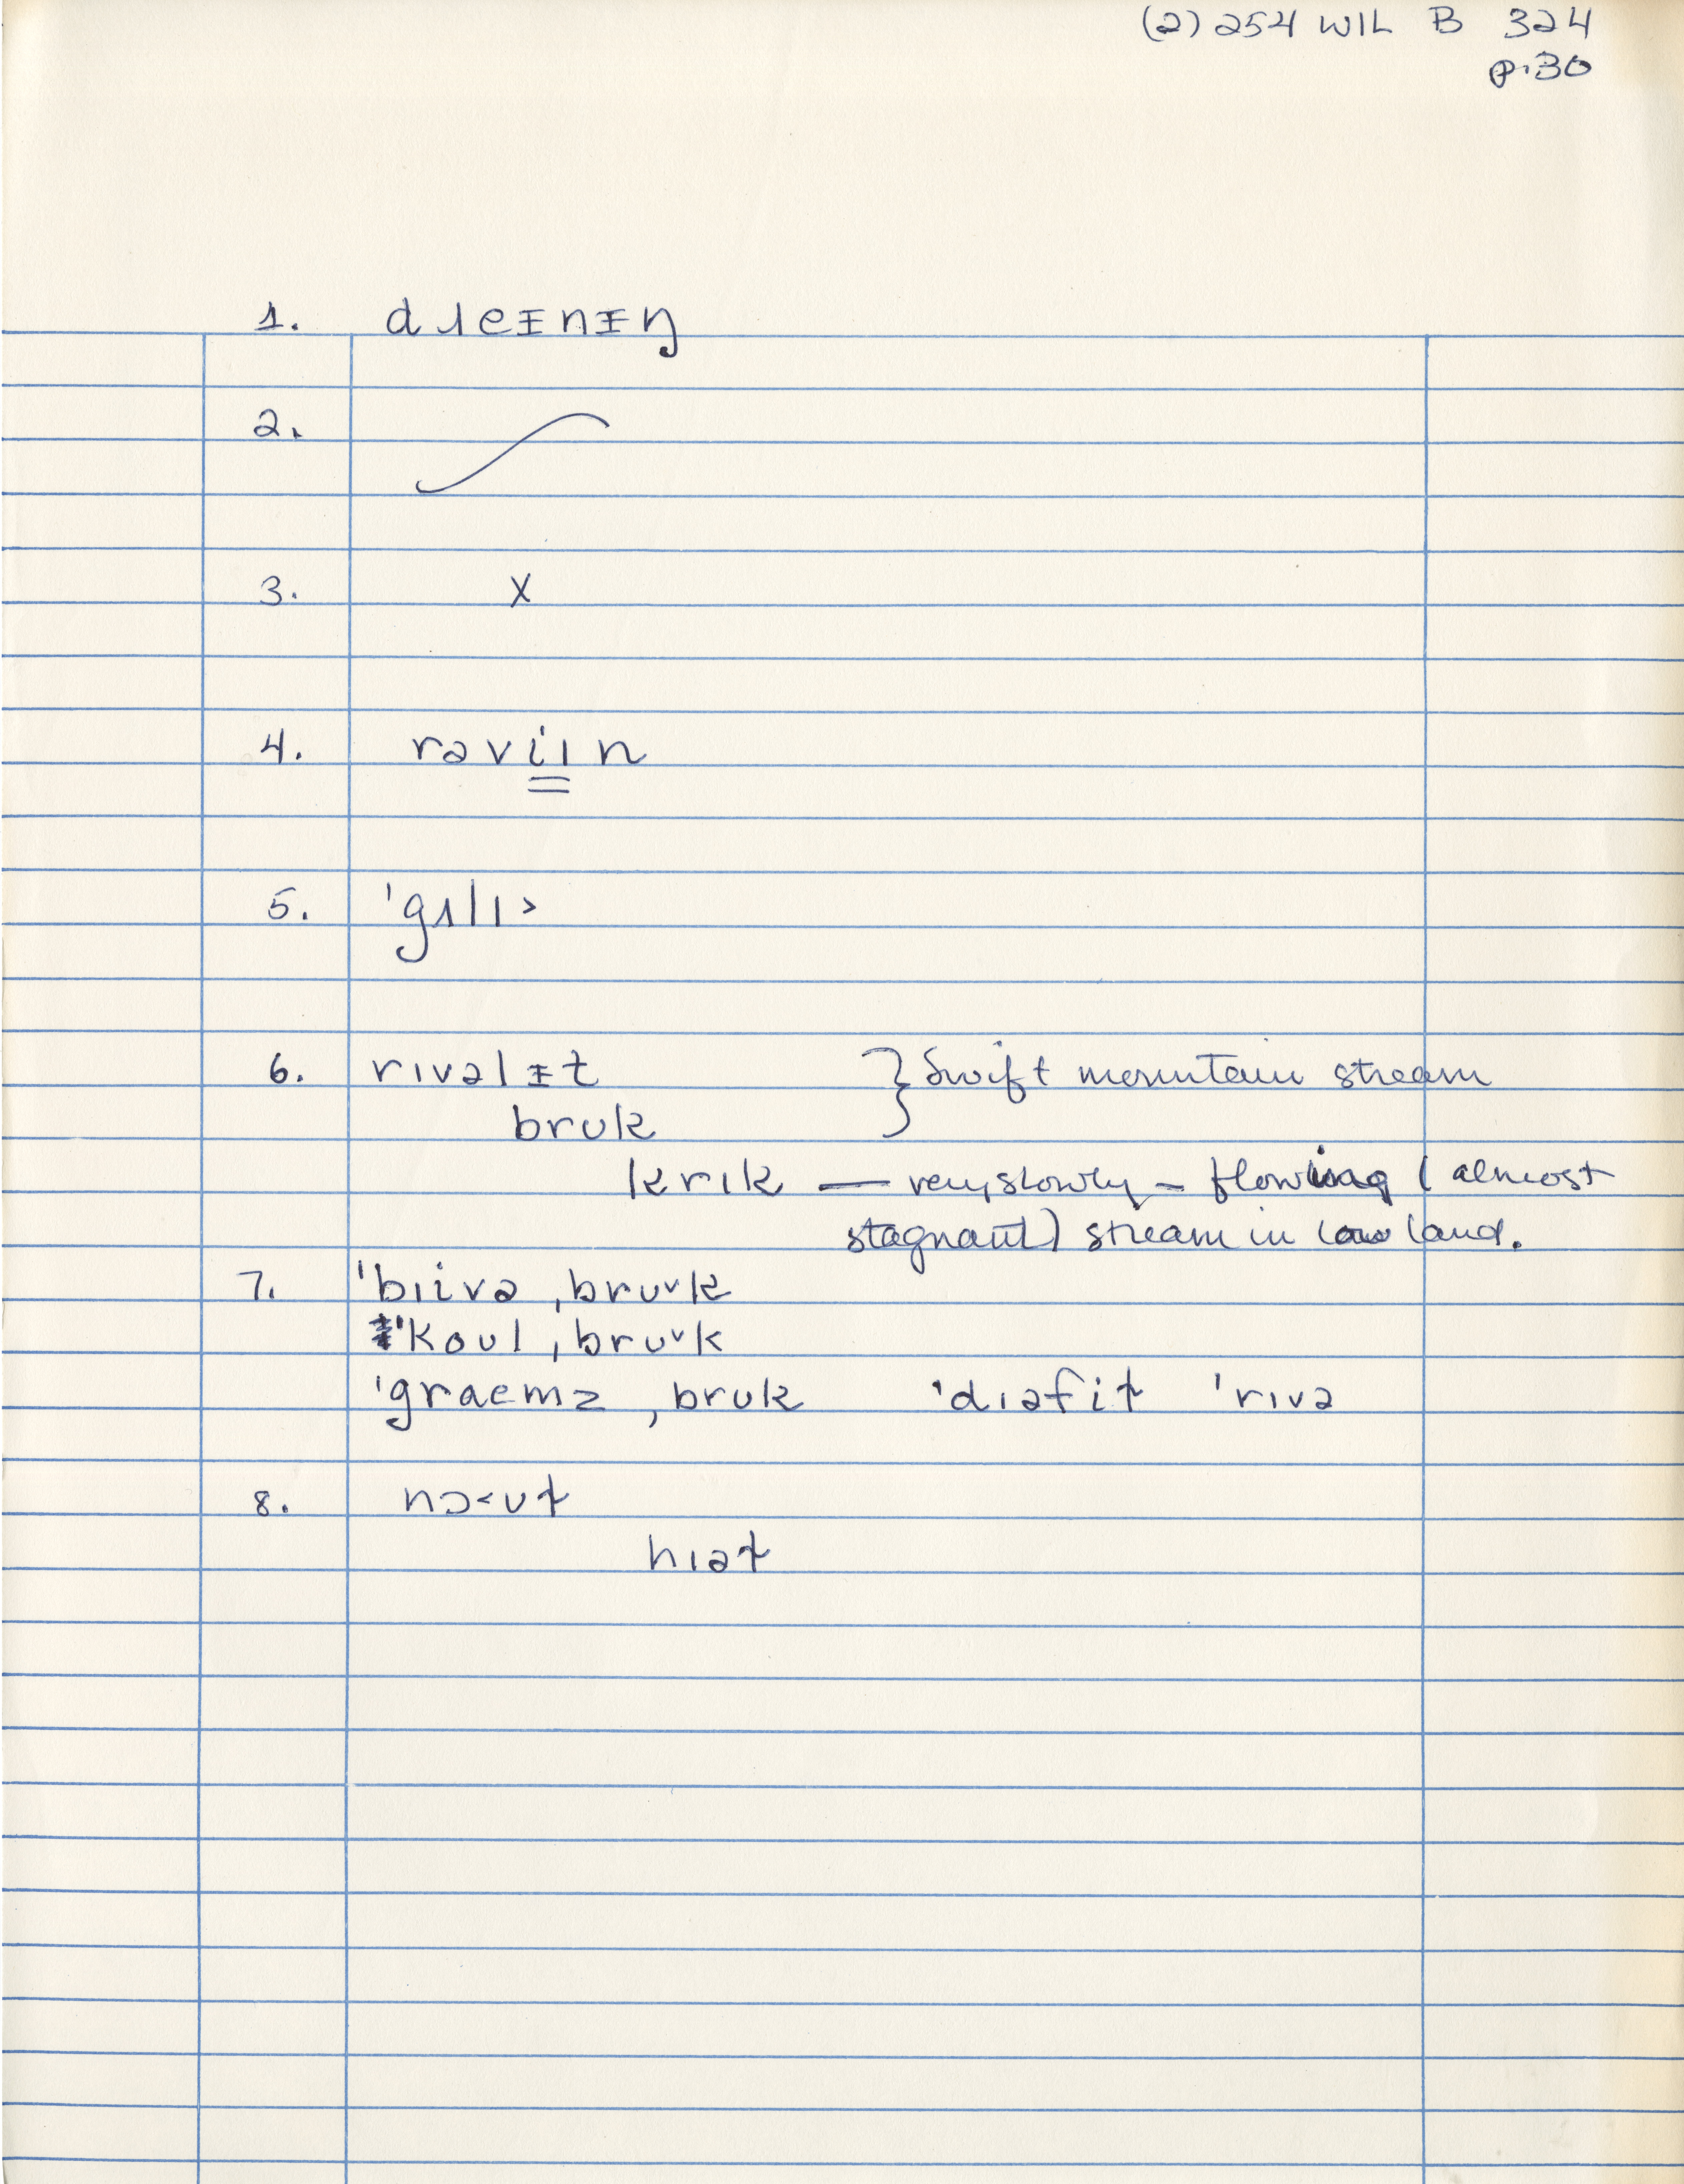 (2) 254 WIL B 324
p.30
1. dɹeᵻnᵻŋ
2.
3. X
4. rəviɪn
5. 'gɜlɪ>
6. rɪvəlᵻt } Swift mountain stream
brʊk
krɪk — very slowly - flowing (almost
stagnant) stream in low land.
7. 'bɪivə ˌbrʊvk
'Koʊl ˌbrʊvk
'graemz ˌbrʊk 'dɪəfit 'rɪvə
8. nɔ<ʊt
hɪət